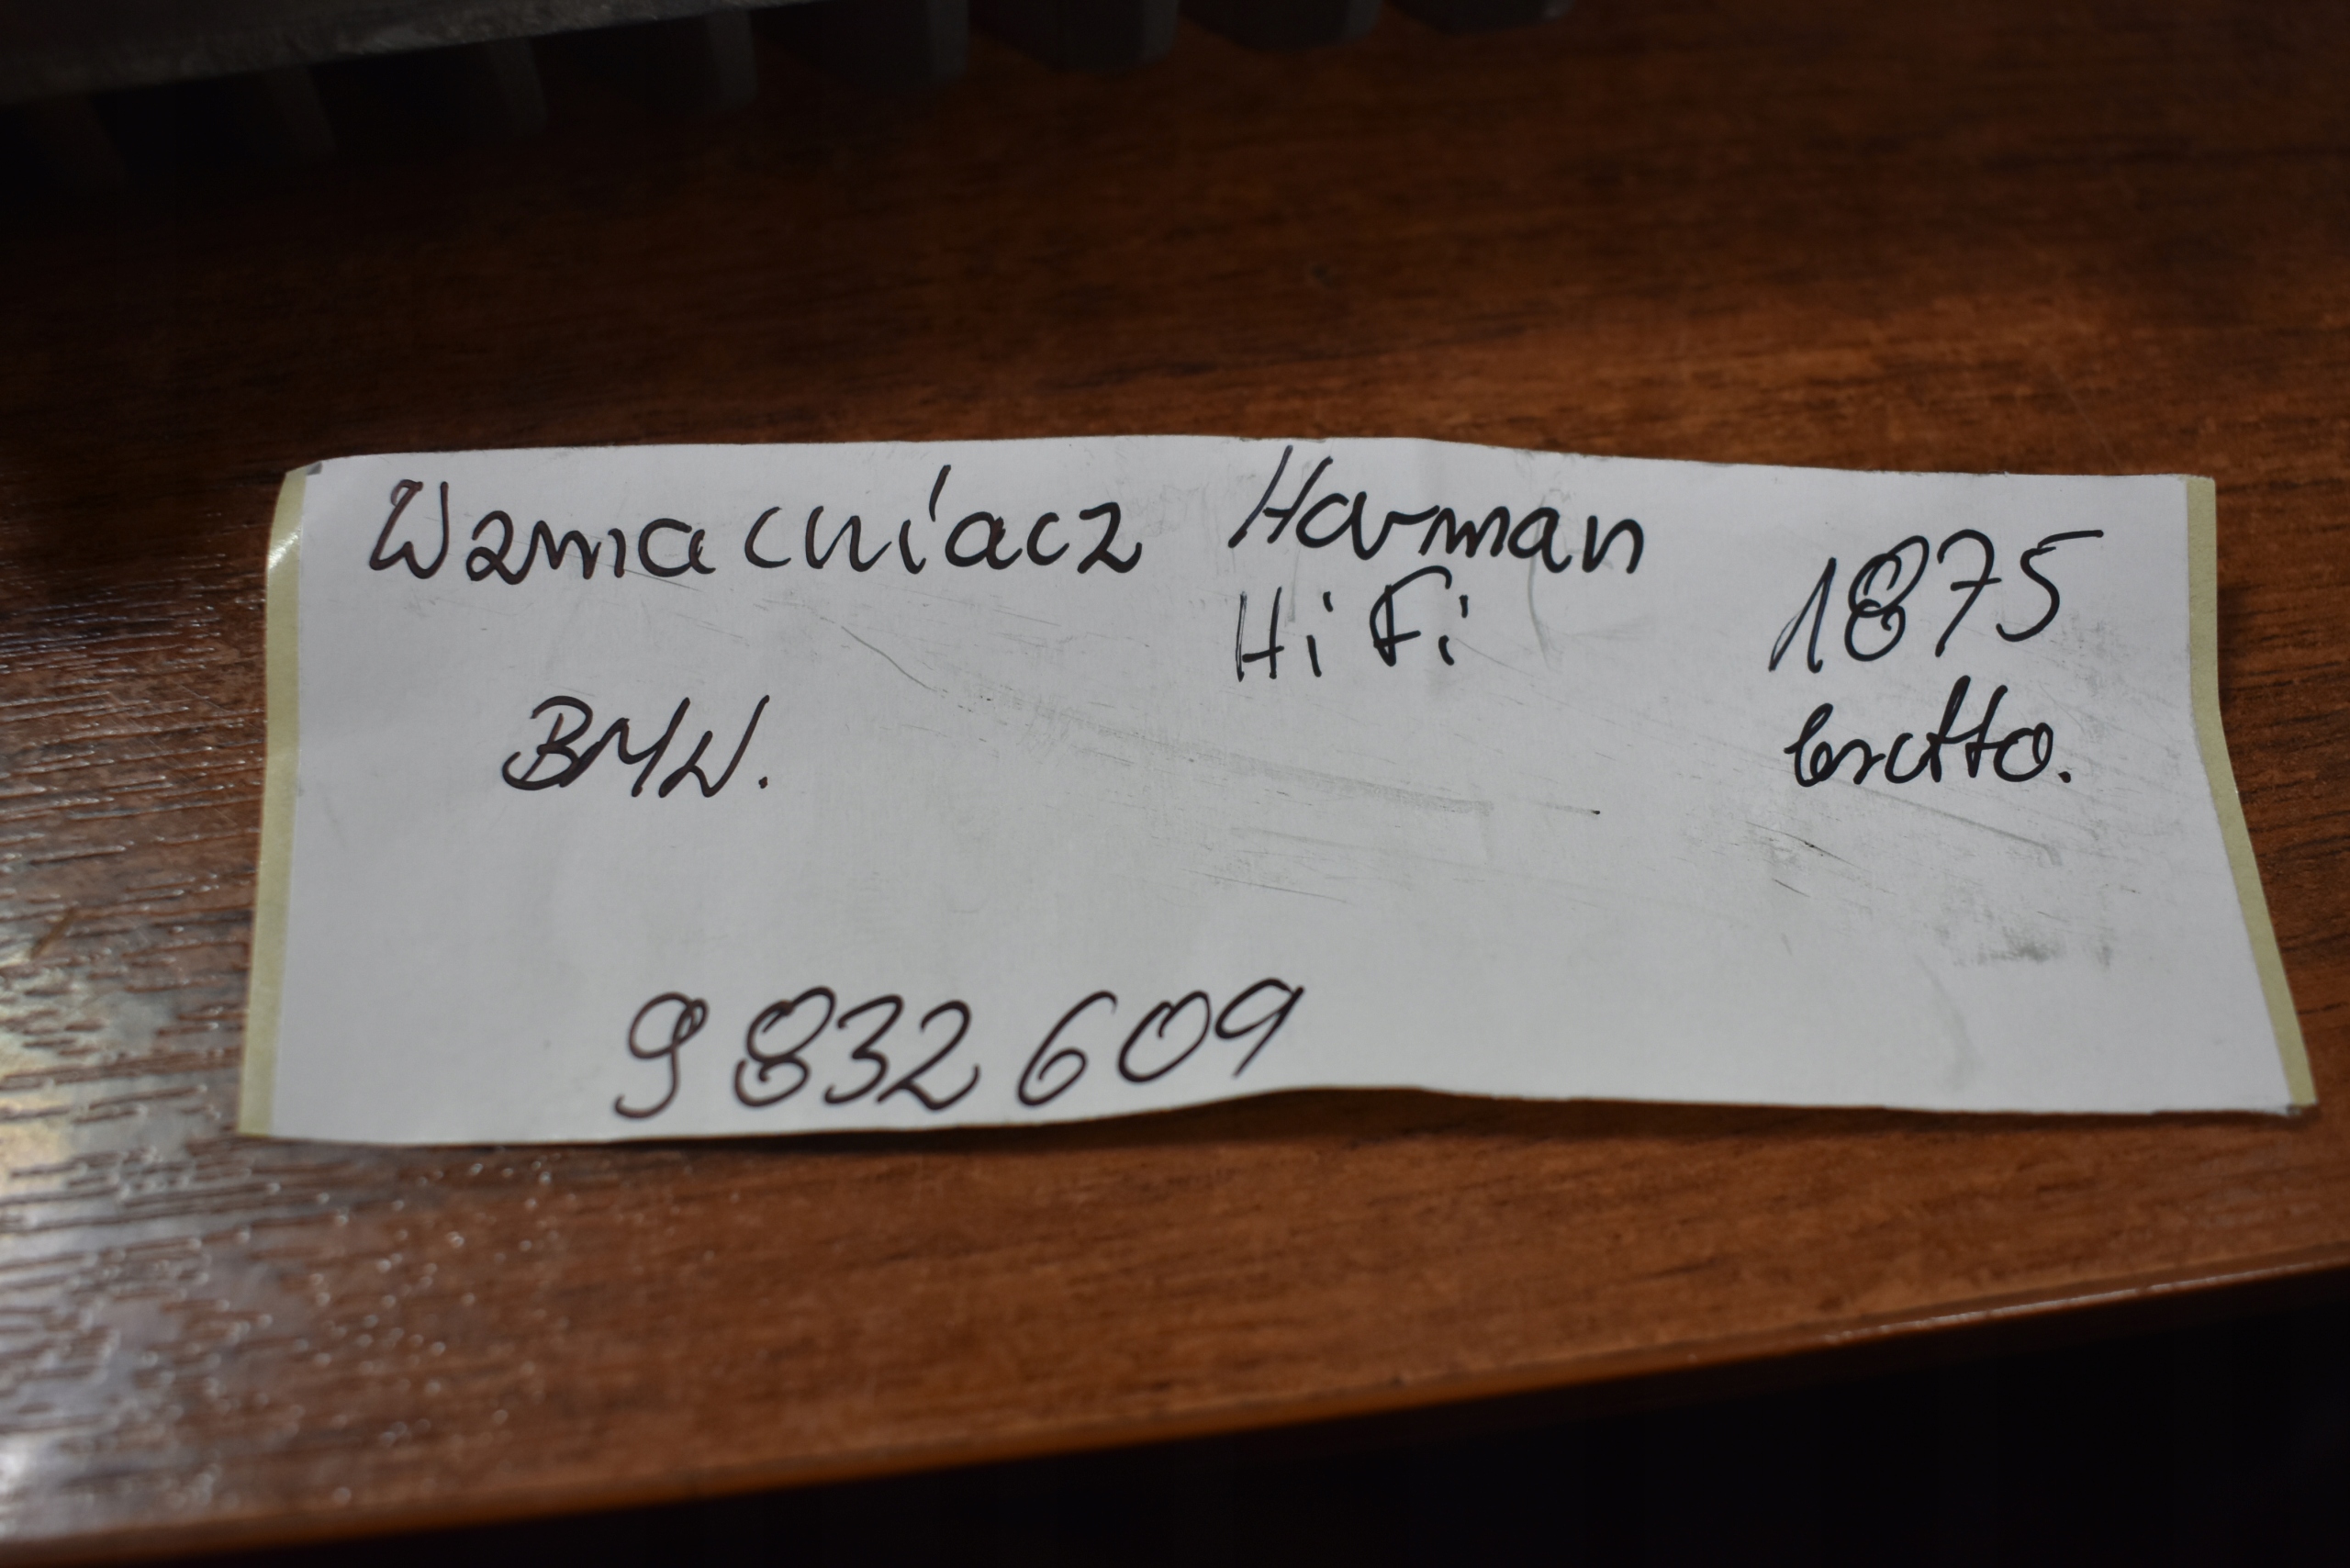 Wzmacniacz Harman
HiFi
1875
brutto.
BMW.
9832609